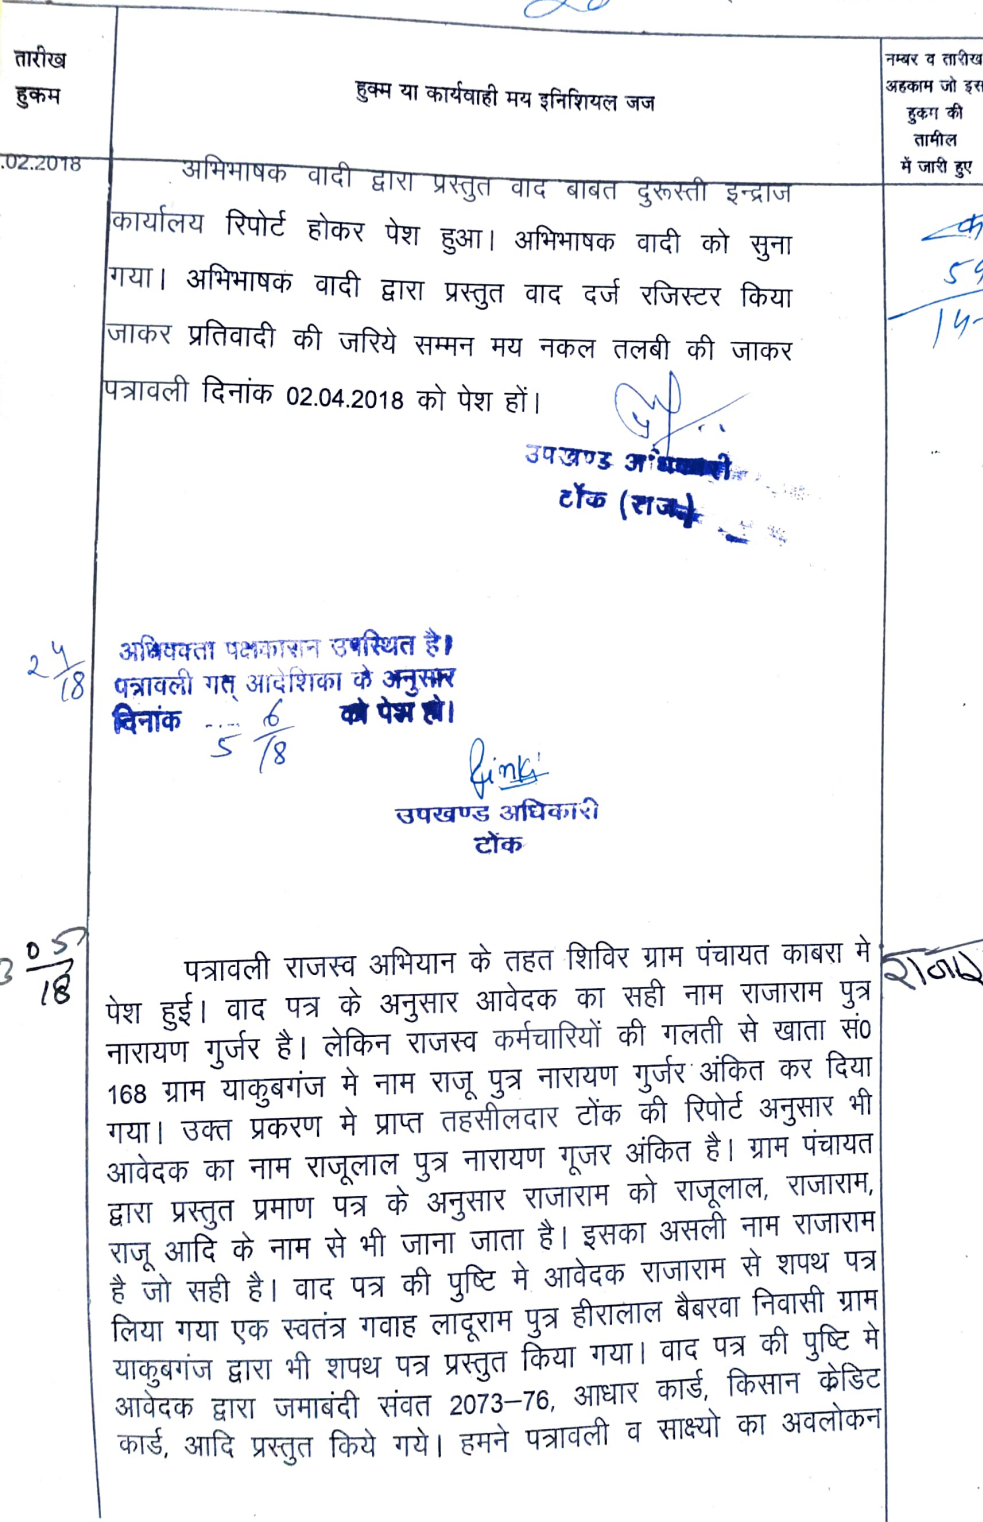 तारीख
हुकम
हुक्म या कार्यवाही मय इनिशियल जज
नम्बर व तारीख
अहकाम जो इस
हुकम की
तामील
में जारी हुए
.02.2018
अभिभाषक वादी द्वारा प्रस्तुत वाद बाबत दुरूस्ती इन्द्राज
कार्यालय रिपोर्ट होकर पेश हुआ। अभिभाषक वादी को सुना
गया। अभिभाषक वादी द्वारा प्रस्तुत वाद दर्ज रजिस्टर किया
जाकर प्रतिवादी की जरिये सम्मन मय नकल तलबी की जाकर
पत्रावली दिनांक 02.04.2018 को पेश हों।
उपखण्ड अधिकारी
टोंक (राज.)
2 4/18
अभिवक्ता पक्षकारान उपस्थित है।
पत्रावली गत् आदेशिका के अनुसार
दिनांक 5 6/18 को पेश हो।
उपखण्ड अधिकारी
टोंक
05/18
पत्रावली राजस्व अभियान के तहत शिविर ग्राम पंचायत काबरा मे
पेश हुई। वाद पत्र के अनुसार आवेदक का सही नाम राजाराम पुत्र
नारायण गुर्जर है। लेकिन राजस्व कर्मचारियों की गलती से खाता सं0
168 ग्राम याकुबगंज मे नाम राजू पुत्र नारायण गुर्जर अंकित कर दिया
गया। उक्त प्रकरण मे प्राप्त तहसीलदार टोंक की रिपोर्ट अनुसार भी
आवेदक का नाम राजूलाल पुत्र नारायण गूजर अंकित है। ग्राम पंचायत
द्वारा प्रस्तुत प्रमाण पत्र के अनुसार राजाराम को राजूलाल, राजाराम,
राजू आदि के नाम से भी जाना जाता है। इसका असली नाम राजाराम
है जो सही है। वाद पत्र की पुष्टि मे आवेदक राजाराम से शपथ पत्र
लिया गया एक स्वतंत्र गवाह लादूराम पुत्र हीरालाल बैबरवा निवासी ग्राम
याकुबगंज द्वारा भी शपथ पत्र प्रस्तुत किया गया। वाद पत्र की पुष्टि मे
आवेदक द्वारा जमाबंदी संवत 2073–76, आधार कार्ड, किसान क्रेडिट
कार्ड, आदि प्रस्तुत किये गये। हमने पत्रावली व साक्ष्यो का अवलोकन